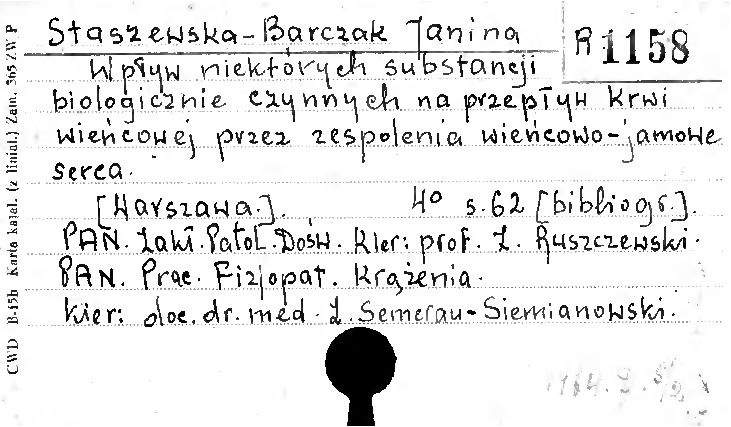 Staszewska-Barczak Janina
R 1158
Wpływ niektórych substancji
biologicznie czynnych na przepływ krwi
wieńcowej przez zespolenia wieńcowo-jamowe
serca.
[Warszawa.]. 4° s.62 [bibliogr.].
PAN. Zakł. Patol. Dośw. Kier: prof. Z. Ruszczewski.
PAN. Prac. Fizjopat. Krążenia.
Kier: doc. dr. med. Z. Semerau-Siemianowski.
CWD B-45b Karta katal. (z linial.) Zam. 365 ZWP